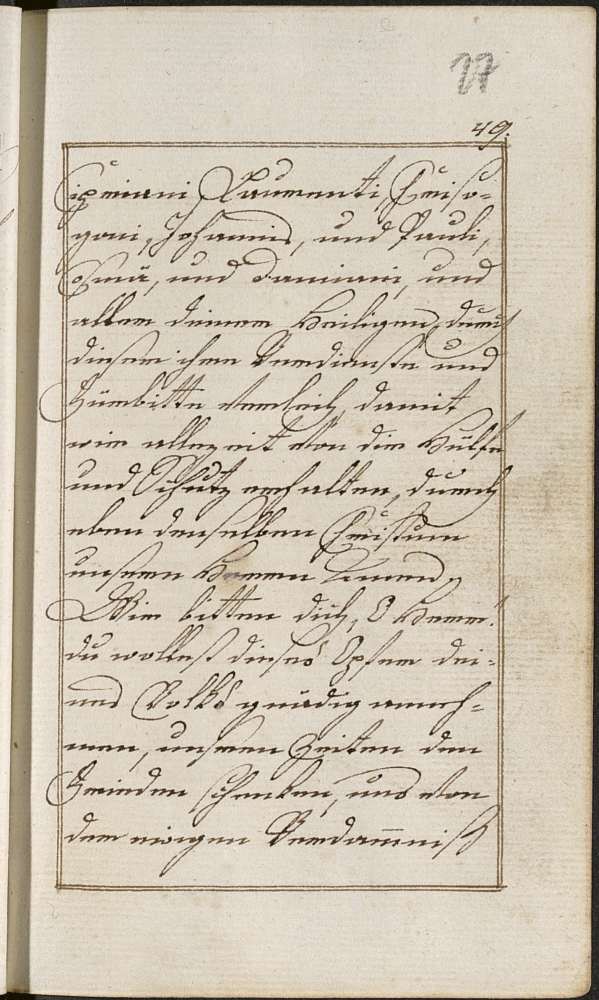 49.
Cipriani Laurenti, Chriso-
goni, Johannis, und Pauli,
Cosmä, und Damiani, und
allen deinen Heiligen, durch
diesen ihren Verdienste und
Fürbitte verleih, damit
wir allezeit von dir Hülfe
und Schutz erhalten, durch
eben denselben Christum
unsern Herren Amen.
Wir bitten dich, O Herr!
du wollest dieses Opfer dei-
nes Volks gnädig anneh-
men, unseren Zeiten den
Frieden schenken, uns von
der ewigen Verdamniß